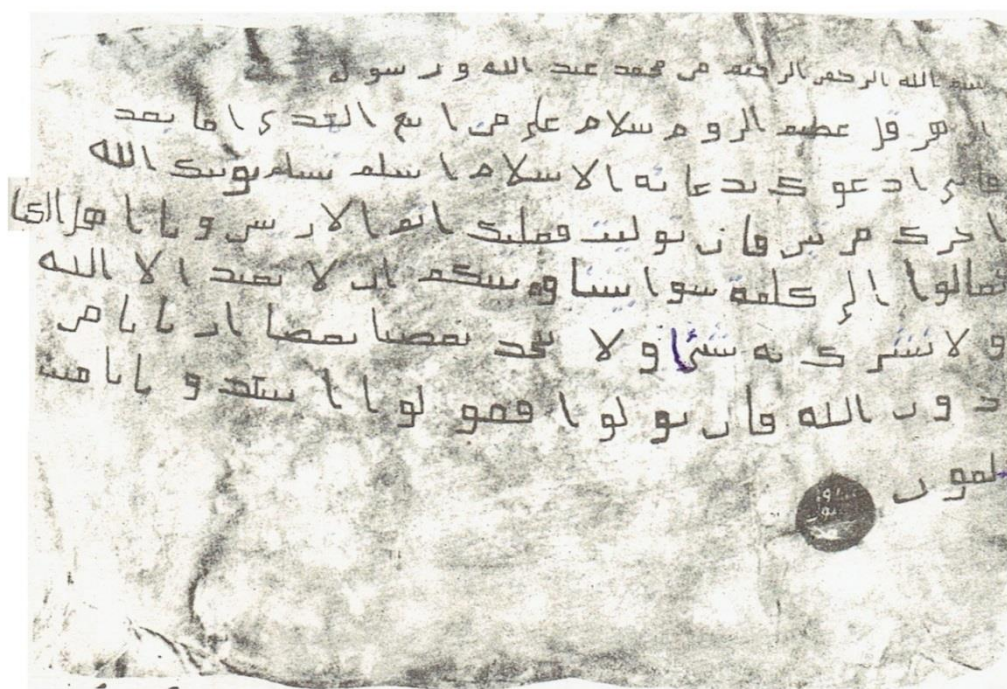 بسم الله الرحمن الرحيم من محمد عبد الله و رسو له
الى هر قل عظيم الرو م سلام على من ا تبع الهدى ا ما بعد
فا نى ا دعو ك بدعا ية ا لا سلام ا سلم تسلم يؤتك الله
ا جر ك مر تين فا ن تو ليت فعليك ا ثم ا لا ر يسين و يا ا هل الكتا
تعالوا ا لى كلمة سوا بيننا و بينكم ا ن لا نعبد ا لا الله
و لا نشر ك به شيئا و لا يتخذ بعضنا بعضا ا ر با با من
د و ن الله فا ن تو لوا فقو لوا ا شهد و ا با نا مسـ
لمو ن